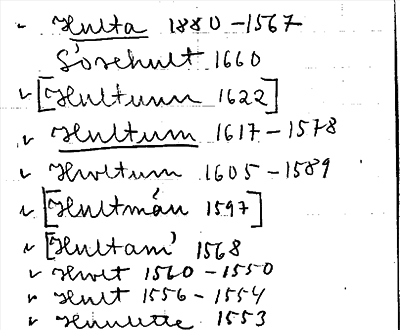 Hulta 1880-1567
Sörehult 1660
[Hultunn 1622]
Hultum 1617-1578
Hwltum 1605-1589
[Hultmán 1597]
[Hultam' 1568
Hwlt 1560-1550
Hult 1556-1554
1553